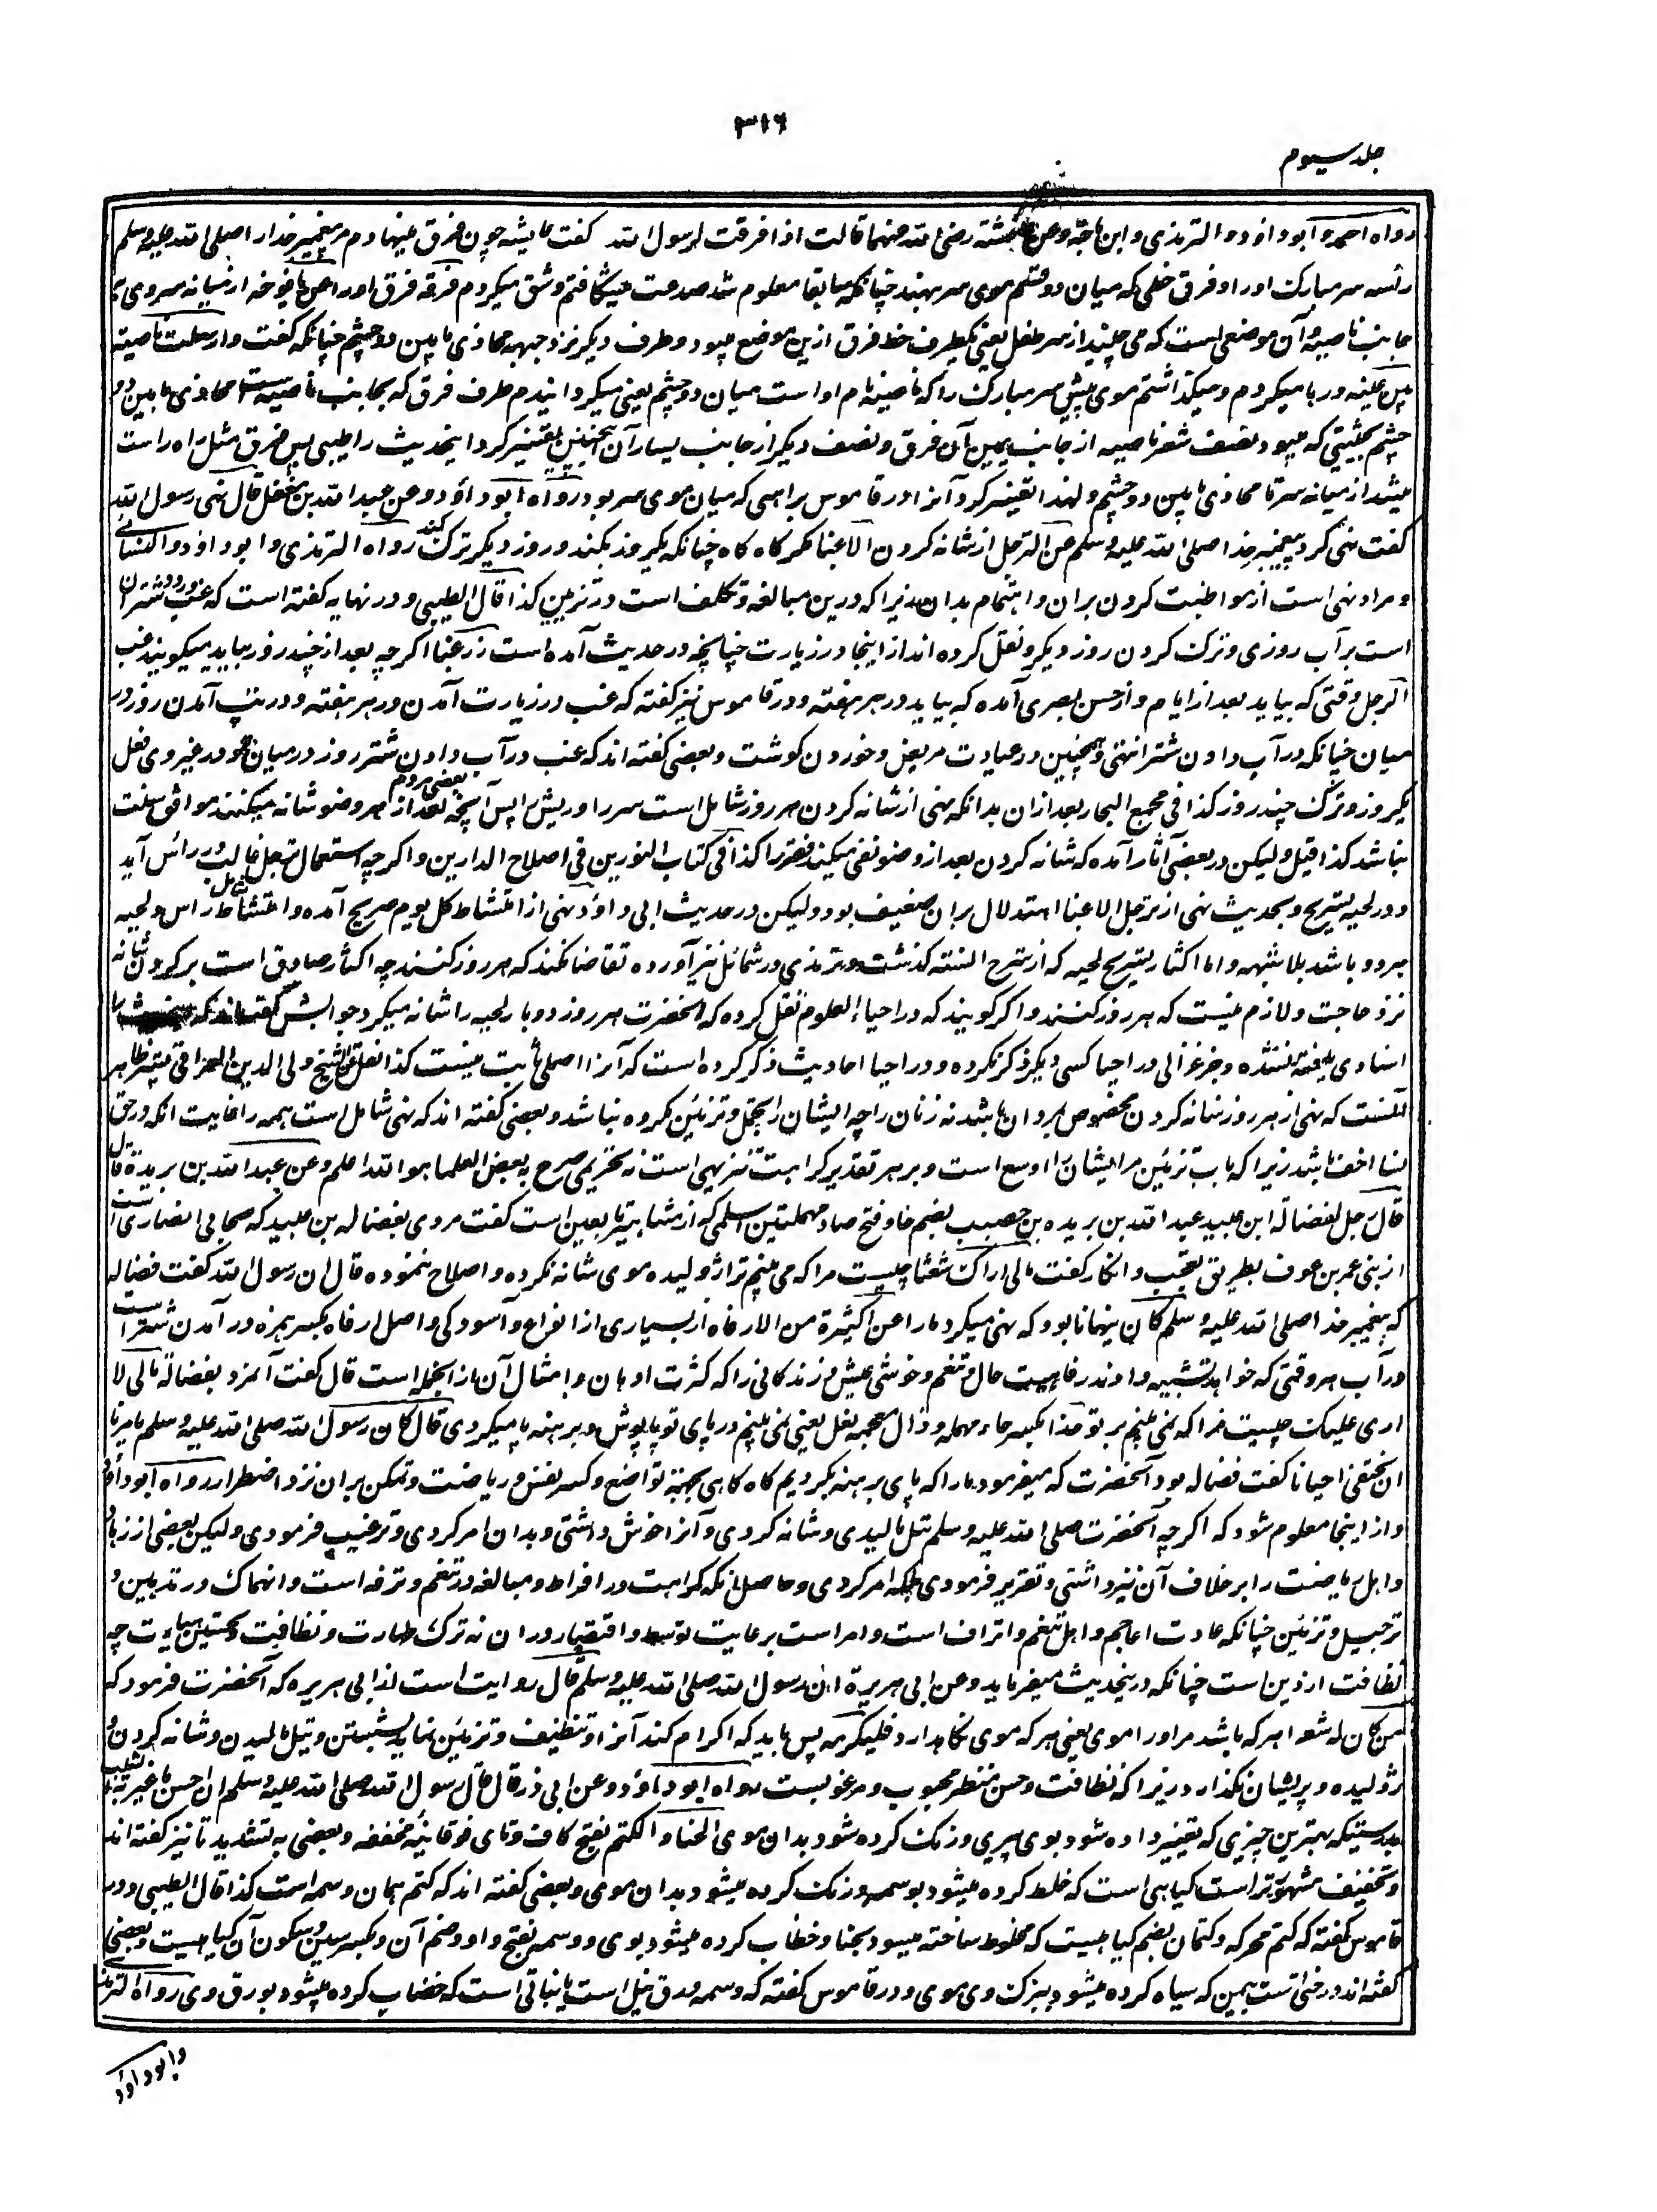 ۳۱۶
جلد سیوم
رواه احمد و ابو داؤد و الترمذی و ابن ماجة وعن عایشة رضی الله عنها قالت اذا فرقت لرسول الله گفت عایشه چون فرق مینهادم مر پیغمبر خدا را صلی الله علیه وسلم
رأسه سر مبارک او را و فرق خطی که میان دو قسم موی سر نهند چنانکه سابقا معلوم شد صدعت میشگافتم و شق میکردم فرقه فرق او را عن یافوخه از میانه سر وی
جانب ناصیه و آن موضعی است که می جنبد از سر طفل یعنی یکطرف خط فرق ازین موضع میبود و طرف دیگر نزد جبهه محاذی مابین دو چشم چنانکه گفت وارسلت ناصیته
بین عینیه و رها میکردم و میگذاشتم موی پیش سر مبارک را که ناصیه نام او است میان دو چشم یعنی میگردانیدم طرف فرق که بجانب ناصیه است محاذی مابین دو
چشم بحیثیتی که میبود نصف شعر ناصیه از جانب یمین آن فرق و نصف دیگر از جانب یسار آن همچنین تفسیر کرد اینحدیث را طیبی پس فرق مثل راه راست
میشد از میانه سر تا محاذی مابین دو چشم و لهذا تفسیر کرد آنرا در قاموس براهی که میان موی سر بود رواه ابو داؤد وعن عبد الله بن مغفل قال نهی رسول الله
گفت نهی کرد پیغمبر خدا صلی الله علیه وسلم عن الترجل از شانه کردن الا غبا مگر گاه گاه چنانکه یکروز بکند و روز دیگر ترک کند رواه الترمذی و ابو داؤد و النسائی
و مراد نهی است از مواظبت کردن بران و اهتمام بدان زیرا که درین مبالغه و تکلف است در تزیین کذا قال الطیبی و در نهایه گفته است که غب ورود شتران
است بر آب روزی و ترک کردن روز دیگر و نقل کرده اند از اینجا در زیارت چنانچه در حدیث آمده است زر غبا اگرچه بعد از چند روز بیاید میگویند غب
الرجل وقتی که بیاید بعد از ایام و از حسن بصری آمده که بیاید در هر هفته و در قاموس نیز گفته که غب در زیارت آمدن در هر هفته و در تپ آمدن روز در
میان چنانکه در آب دادن شتر انتهی و همچنین در عیادت مریض و خوردن گوشت و بعضی گفته اند که غب در آب دادن شتر روز در میان بود و در غیر وی فعل
یکروز و ترک چند روز کذا فی مجمع البحار بعد ازان بدانکه نهی از شانه کردن هر روز شامل است سر را و ریش را پس آنچه بعضی مردم بعد از هر وضو شانه میکنند موافق سنت
نباشد کذا قیل و لیکن در بعضی آثار آمده که شانه کردن بعد از وضو نفی میکند فقر را کذا فی کتاب النورین فی اصلاح الدارین و اگرچه استعمال ترجل غالب در رأس آید
و در لحیه تسریح و بحدیث نهی از ترجل الا غبا استدلال بران ضعیف بود و لیکن در حدیث ابی داؤد نهی از امتشاط کل یوم صریح آمده و امتشاط شامل راس و لحیه
هر دو باشد بلا شبهه و اما اکثار تسریح لحیه که از شرح السنه گذشت و ترمذی در شمائل نیز آورده تقاضا نکند که هر روز کنند چه اکثار صادق است بر کردن شانه
نزد حاجت و لازم نیست که هر روز کنند و اگر گویند که در احیاء العلوم نقل کرده که آنحضرت هر روز دو بار لحیه را شانه میکرد جوابش گفته اند که
اسنادی یافته نشده و جز غزالی در احیا کسی دیگر ذکر نکرده و در احیا احادیث ذکر کرده است که آنرا اصلی ثابت نیست کذا نقل عن الشیخ ولی الدین العراقی نیز ظاهر
آنست که نهی از هر روز شانه کردن مخصوص بمردان باشد نه زنان را چه ایشان را تجمل و تزئین مکروه نباشد و بعضی گفته اند که نهی شامل است همه را غایت آنکه در حق
نسا اخف باشد زیرا که باب تزئین مر ایشان را اوسع است و بر هر تقدیر کراهت تنزیهی است نه تحریمی صرح به بعض العلماء و الله اعلم وعن عبد الله بن بریدة قال
قال رجل لفضالة ابن عبید عبد الله بن بریده بن حصیب بضم حا و فتح صاد مهملتین اسلمی که از مشاهیر تابعین است گفت مردی بفضاله بن عبید که صحابی انصاری است
از بنی عمر بن عوف بطریق تعجب و انکار گفت مالی اراک شعثا چیست مرا که می بینم ترا ژولیده موی شانه نکرده و اصلاح ننموده قال ان رسول الله گفت فضاله
که پیغمبر خدا صلی الله علیه وسلم کان ینهانا بود که نهی میکرد ما را عن کثیرة من الارفاه از بسیاری از انواع آسودگی و اصل ارفاه بکسر همزه در آمدن شتر است
در آب هر وقتی که خواهد تشبیه دادند رفاهیت حال و تنعم و خوشی عیش و زندگانی را که کثرت ادهان و امثال آن از انجمله است قال گفت آنمرد بفضاله مالی لا
اری علیک چیست مرا که نمی بینم بر تو حذا بکسر حاء مهمله و ذال معجمه نعل یعنی نمی بینم در پای تو پاپوش و برهنه پا میگردی قال کان رسول الله صلی الله علیه وسلم یامرنا
ان نحتفی احیانا گفت فضاله بود آنحضرت که میفرمود ما را که پای برهنه بگردیم گاه گاهی بجهت تواضع و کسر نفس و ریاضت و تمکن بران نزد اضطرار رواه ابو داؤد
و از اینجا معلوم شود که اگرچه آنحضرت صلی الله علیه وسلم تیل مالیدی و شانه کردی و آنرا خوش داشتی و بدان امر کردی و ترغیب فرمودی و لیکن بعضی از زهاد
و اهل ریاضت را بر خلاف آن نیز داشتی و تقریر فرمودی بلکه امر کردی و حاصل آنکه کراهت در افراط و مبالغه در تنعم و ترفه است و انهماک در تدهین و
ترجیل و تزئین چنانکه عادت اعاجم و اهل تنعم و اتراف است و امر است برعایت توسط و اقتصار دران نه ترک طهارت و نظافت و تحسین هیأت چه
نظافت از دین است چنانکه در اینحدیث میفرماید وعن ابی هریرة ان رسول الله صلی الله علیه وسلم قال روایت است از ابی هریره که آنحضرت فرمود که
من کان له شعر هر که باشد مر او را موی یعنی هر که موی نگاهدارد فلیکرمه پس باید که اکرام کند آنرا و تنظیف و تزئین نماید بشستن و تیل مالیدن و شانه کردن و
ژولیده و پریشان نگذارد زیرا که نظافت و حسن منظر محبوب و مرغوبست رواه ابو داؤد وعن ابی ذر قال قال رسول الله صلی الله علیه وسلم ان احسن ما غیر به الشیب
بدرستیکه بهترین چیزی که تغییر داده شود بوی پیری و رنگ کرده شود بدان موی الحنا و الکتم بفتح کاف و تای فوقانیه مخففه و بعضی به تشدید تا نیز گفته اند
و تخفیف مشهورتر است گیاهی است که خلط کرده میشود بوسمه و رنگ کرده میشود بدان موی و بعضی گفته اند که کتم همان وسمه است کذا قال الطیبی و در
قاموس گفته که کتم محرکه و کتمان بضم گیاهیست که مخلوط ساخته میشود بحنا و خضاب کرده میشود بوی و وسمه بفتح واو و ضم آن و بکسر سین و سکون آن گیاهیست و بعضی
گفته اند درختی است بیمن که سیاه کرده میشود ببرگ وی موی و در قاموس گفته که وسمه ورق نیل است یا نباتی است که خضاب کرده میشود بورق وی رواه الترمذی
وابو داؤد